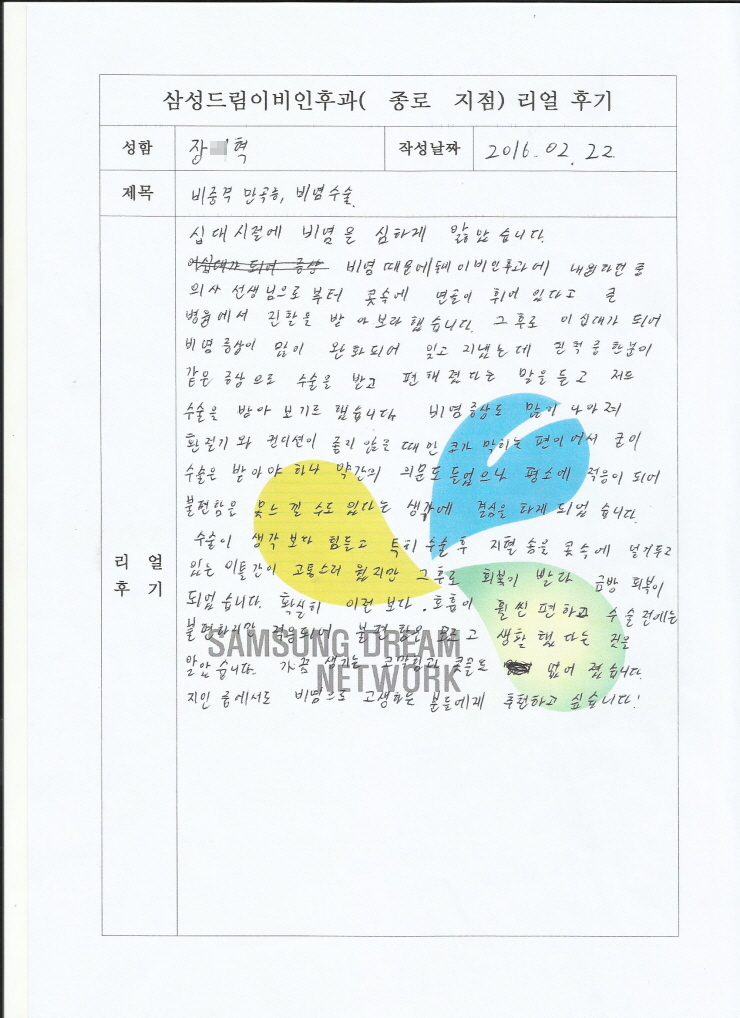 삼성드림이비인후과( 종로 지점) 리얼 후기
성함 장 혁 작성날짜 2016. 02. 22
제목 비중격 만곡증, 비염수술
리 얼
후 기
십대시절에 비염을 심하게 앓았습니다.
비염 때문에 동네 이비인후과에 내원하던 중
의사 선생님으로부터 콧속에 연골이 휘어 있다고 큰
병원에서 진찰을 받아보라 했습니다. 그후로 이십대가 되어
비염증상이 많이 완화되어 잊고 지냈는데 친척중 한분이
같은 증상으로 수술을 받고 편해졌다는 말을 듣고 저도
수술을 받아 보기로 했습니다. 비염증상도 많이 나아져
환절기와 컨디션이 좋지 않을 때만 코가 막히는 편이어서 굳이
수술은 받아야 하나 약간의 의문도 들었으나 평소에 적응이 되어
불편함은 못느낄 수도 있다는 생각에 결심을 하게 되었습니다.
수술이 생각보다 힘들고 특히 수술 후 지혈 솜을 콧속에 넣어두고
있는 이틀간이 고통스러웠지만 그후로 회복이 빨라 금방 회복이
되었습니다. 확실히 이런 보다. 호흡이 훨씬 편하고 수술전에는
불편하지만 적응되어 불편함은 모르고 생활했다는 것을
알았습니다. 가끔 생기는 코막힘과 콧물도 없어졌습니다.
지인 중에서도 비염으로 고생하는 분들에게 추천하고 싶습니다!
SAMSUNG DREAM
NETWORK